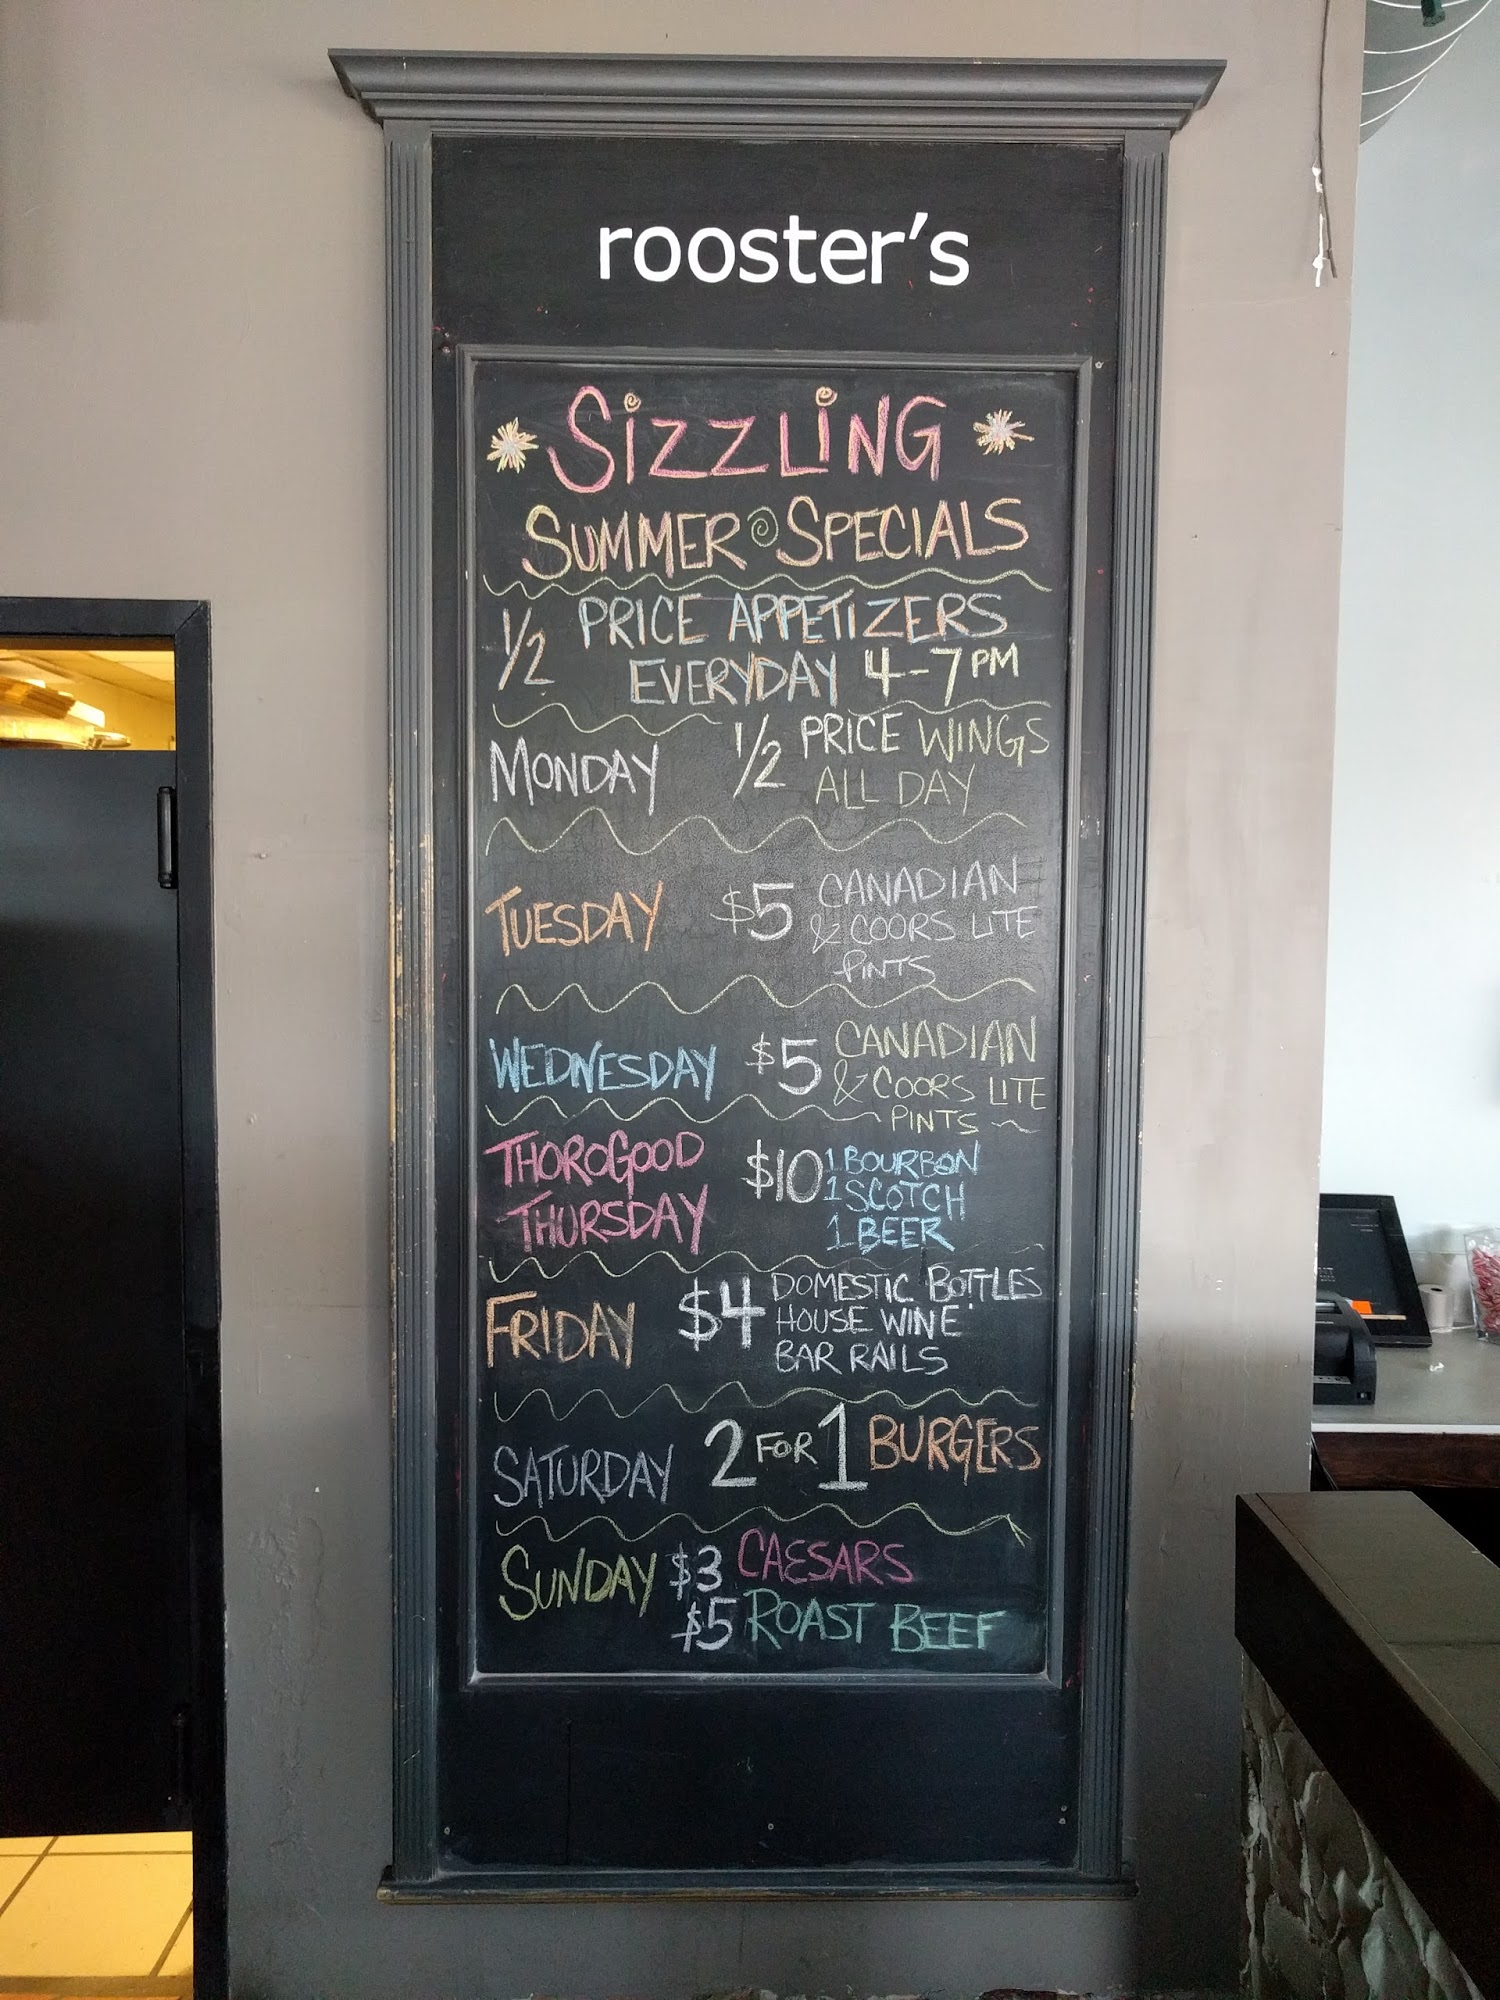 rooster's
SizzLiNG
SUMMER SPECIALS
1/2 PRICE APPETIZERS
EVERYDAY 4-7 PM
MONDAY 1/2 PRICE WINGS
ALL DAY
TUESDAY $5 CANADIAN
& COORS LITE
PINTS
WEDNESDAY $5 CANADIAN
& COORS LITE
PINTS
THOROGOOD
THURSDAY $10 1 BOURBON
1 SCOTCH
1 BEER
FRIDAY $4 DOMESTIC BOTTLES
HOUSE WINE
BAR RAILS
SATURDAY 2 FOR 1 BURGERS
SUNDAY $3 CAESARS
$5 ROAST BEEF